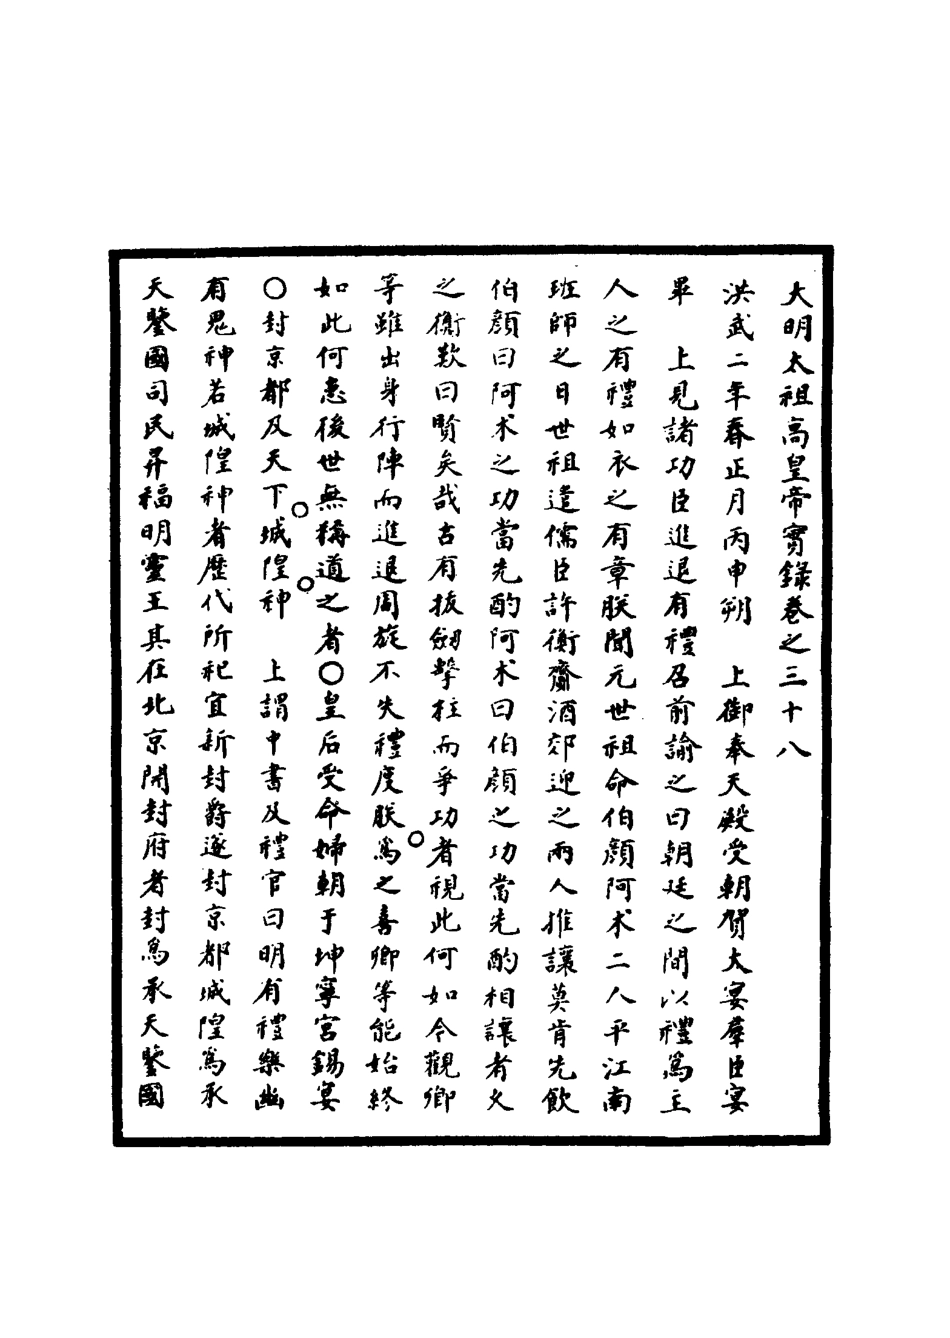 大明太祖高皇帝實錄卷之三十八
洪武二年春正月丙申朔　上御奉天殿受朝賀大宴羣臣宴
畢　上見諸功臣進退有禮召前諭之曰朝廷之間以禮爲主
人之有禮如衣之有章朕聞元世祖命伯顏阿术二人平江南
班師之日世祖遣儒臣許衡齎酒郊迎之兩人推讓莫肯先飲
伯顏曰阿术之功當先酌阿术曰伯顏之功當先酌相讓者久
之衡歎曰賢矣哉古有拔劒擊柱而爭功者視此何如今觀卿
等雖出身行陣而進退周旋不失禮度朕爲之喜卿等能始終
如此何患後世無稱道之者○皇后受命婦朝于坤寧宮錫宴
○封京都及天下城隍神　上謂中書及禮官曰明有禮樂幽
有鬼神若城隍神者歷代所祀宜新封爵遂封京都城隍爲承
天鑒國司民昇福明靈王其在北京開封府者封爲承天鑒國